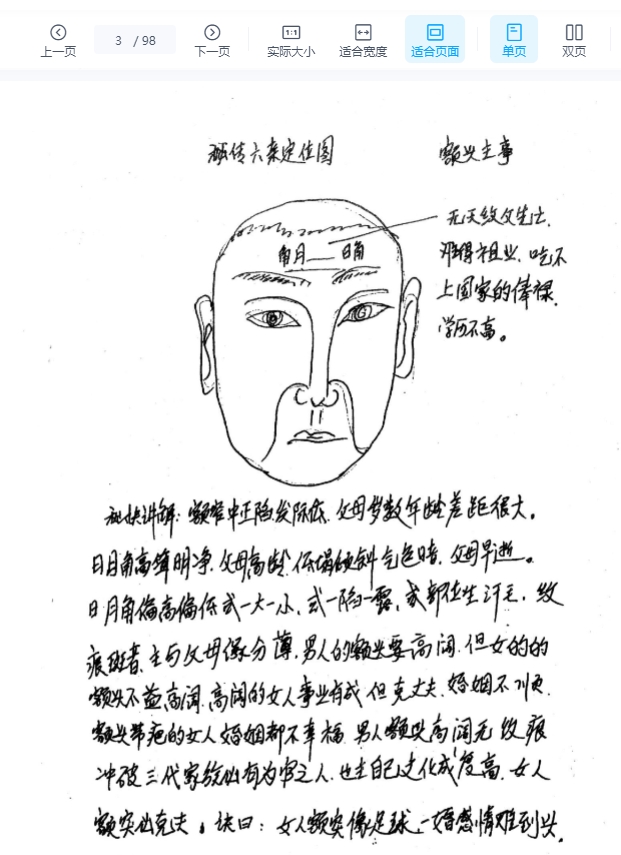 上一页
3 / 98
下一页
1:1
实际大小
适合宽度
适合页面
单页
双页
秘传六亲定位图
额头主事
无天纹父先亡.
难得祖业、吃不
上国家的俸禄.
学历不高。
角月 日角
秘诀讲解：额窄中正陷发际低、父母岁数年龄差距很大。
日月角高耸明净、父母高龄、低塌倾斜气色暗、父母早逝。
日月角偏高偏低或一大一小、或一陷一露、或部位生汗毛、纹
痕斑者、主与父母缘分薄、男人的额头要高阔、但女的的
额头不益高阔、高阔的女人事业有成但克丈夫、婚姻不顺.
额头带疤的女人婚姻都不幸福、男人额头高阔无纹痕
冲破三代家族出有为官之人、也主自己文化成度高、女人
额突出克夫。诀曰：女人额突像足球、一婚感情难到头.